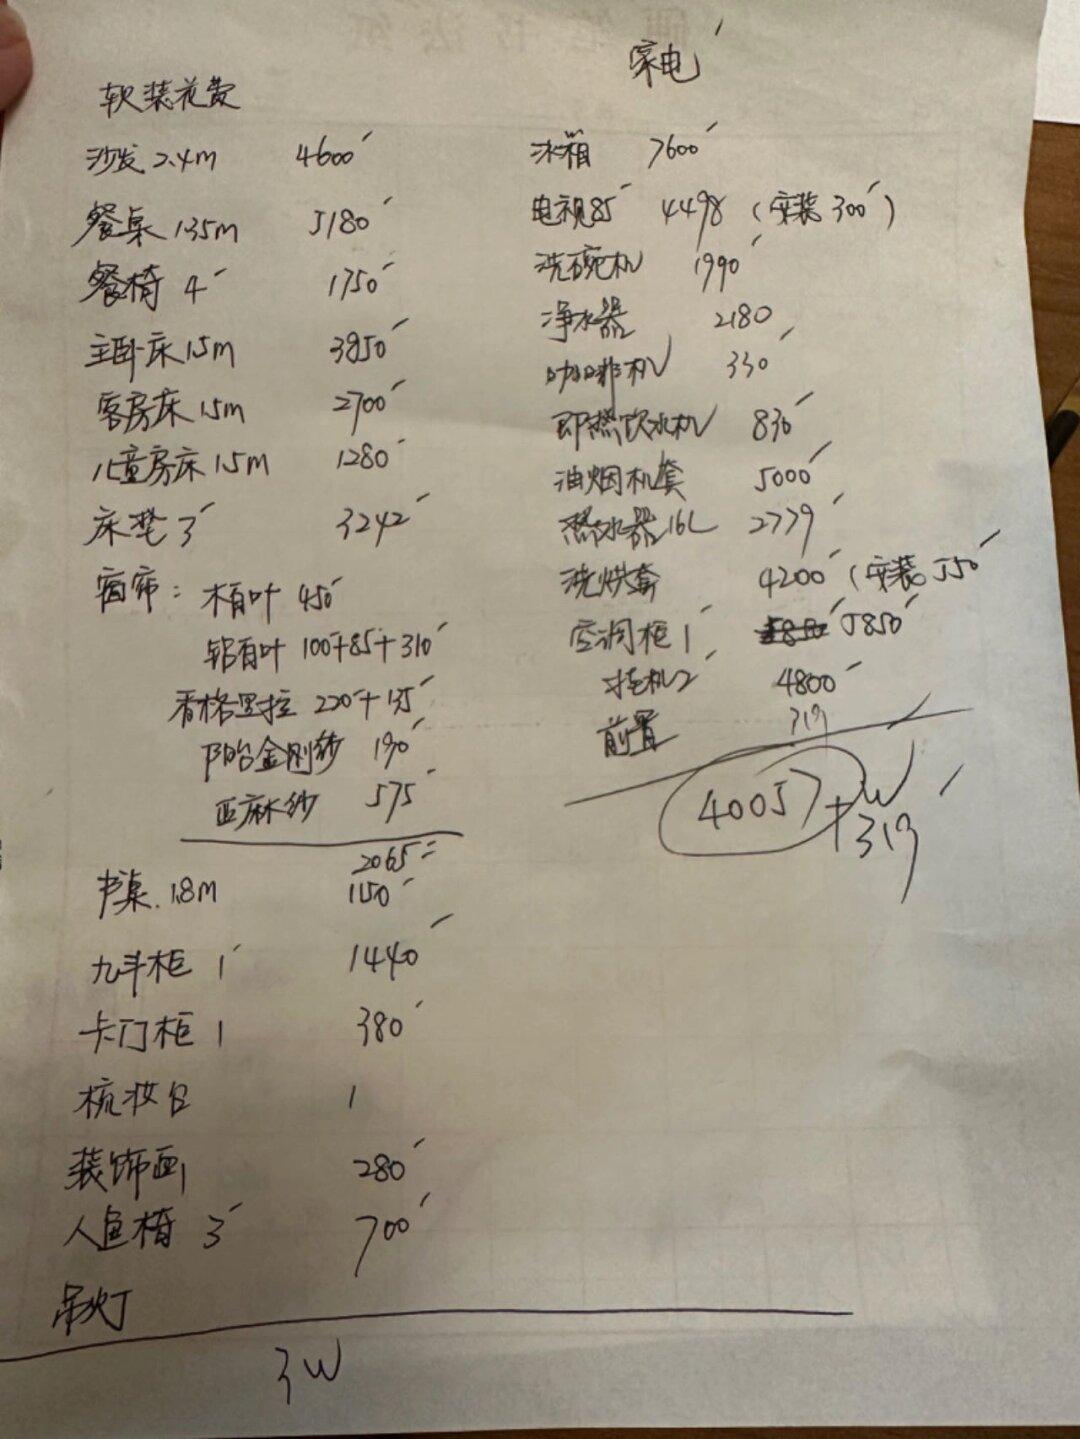 软装花费
沙发 2.4m 4600
餐桌 1.35m 5180
餐椅 4 1750
主卧床 1.5m 3850
客房床 1.5m 2700
儿童房床 1.5m 1280
床垫 3 3242
窗帘: 木百叶 450
铝百叶 100+85+310
香格里拉 220+135
阳台金刚纱 190
亚麻纱 575
2065
书桌. 1.8m 1150
九斗柜 1 1440
卡门柜 1 380
梳妆台 1
装饰画 280
人鱼椅 3 700
吊灯
3W
家电
冰箱 7600
电视85 4498 (安装 300)
洗碗机 1990
净水器 2180
咖啡机 330
即热饮水机 830
油烟机套 5000
热水器 16L 2779
洗烘套 4200 (安装 550
空调柜 1 5850
挂机2 4800
前置 319
40057 +319
W